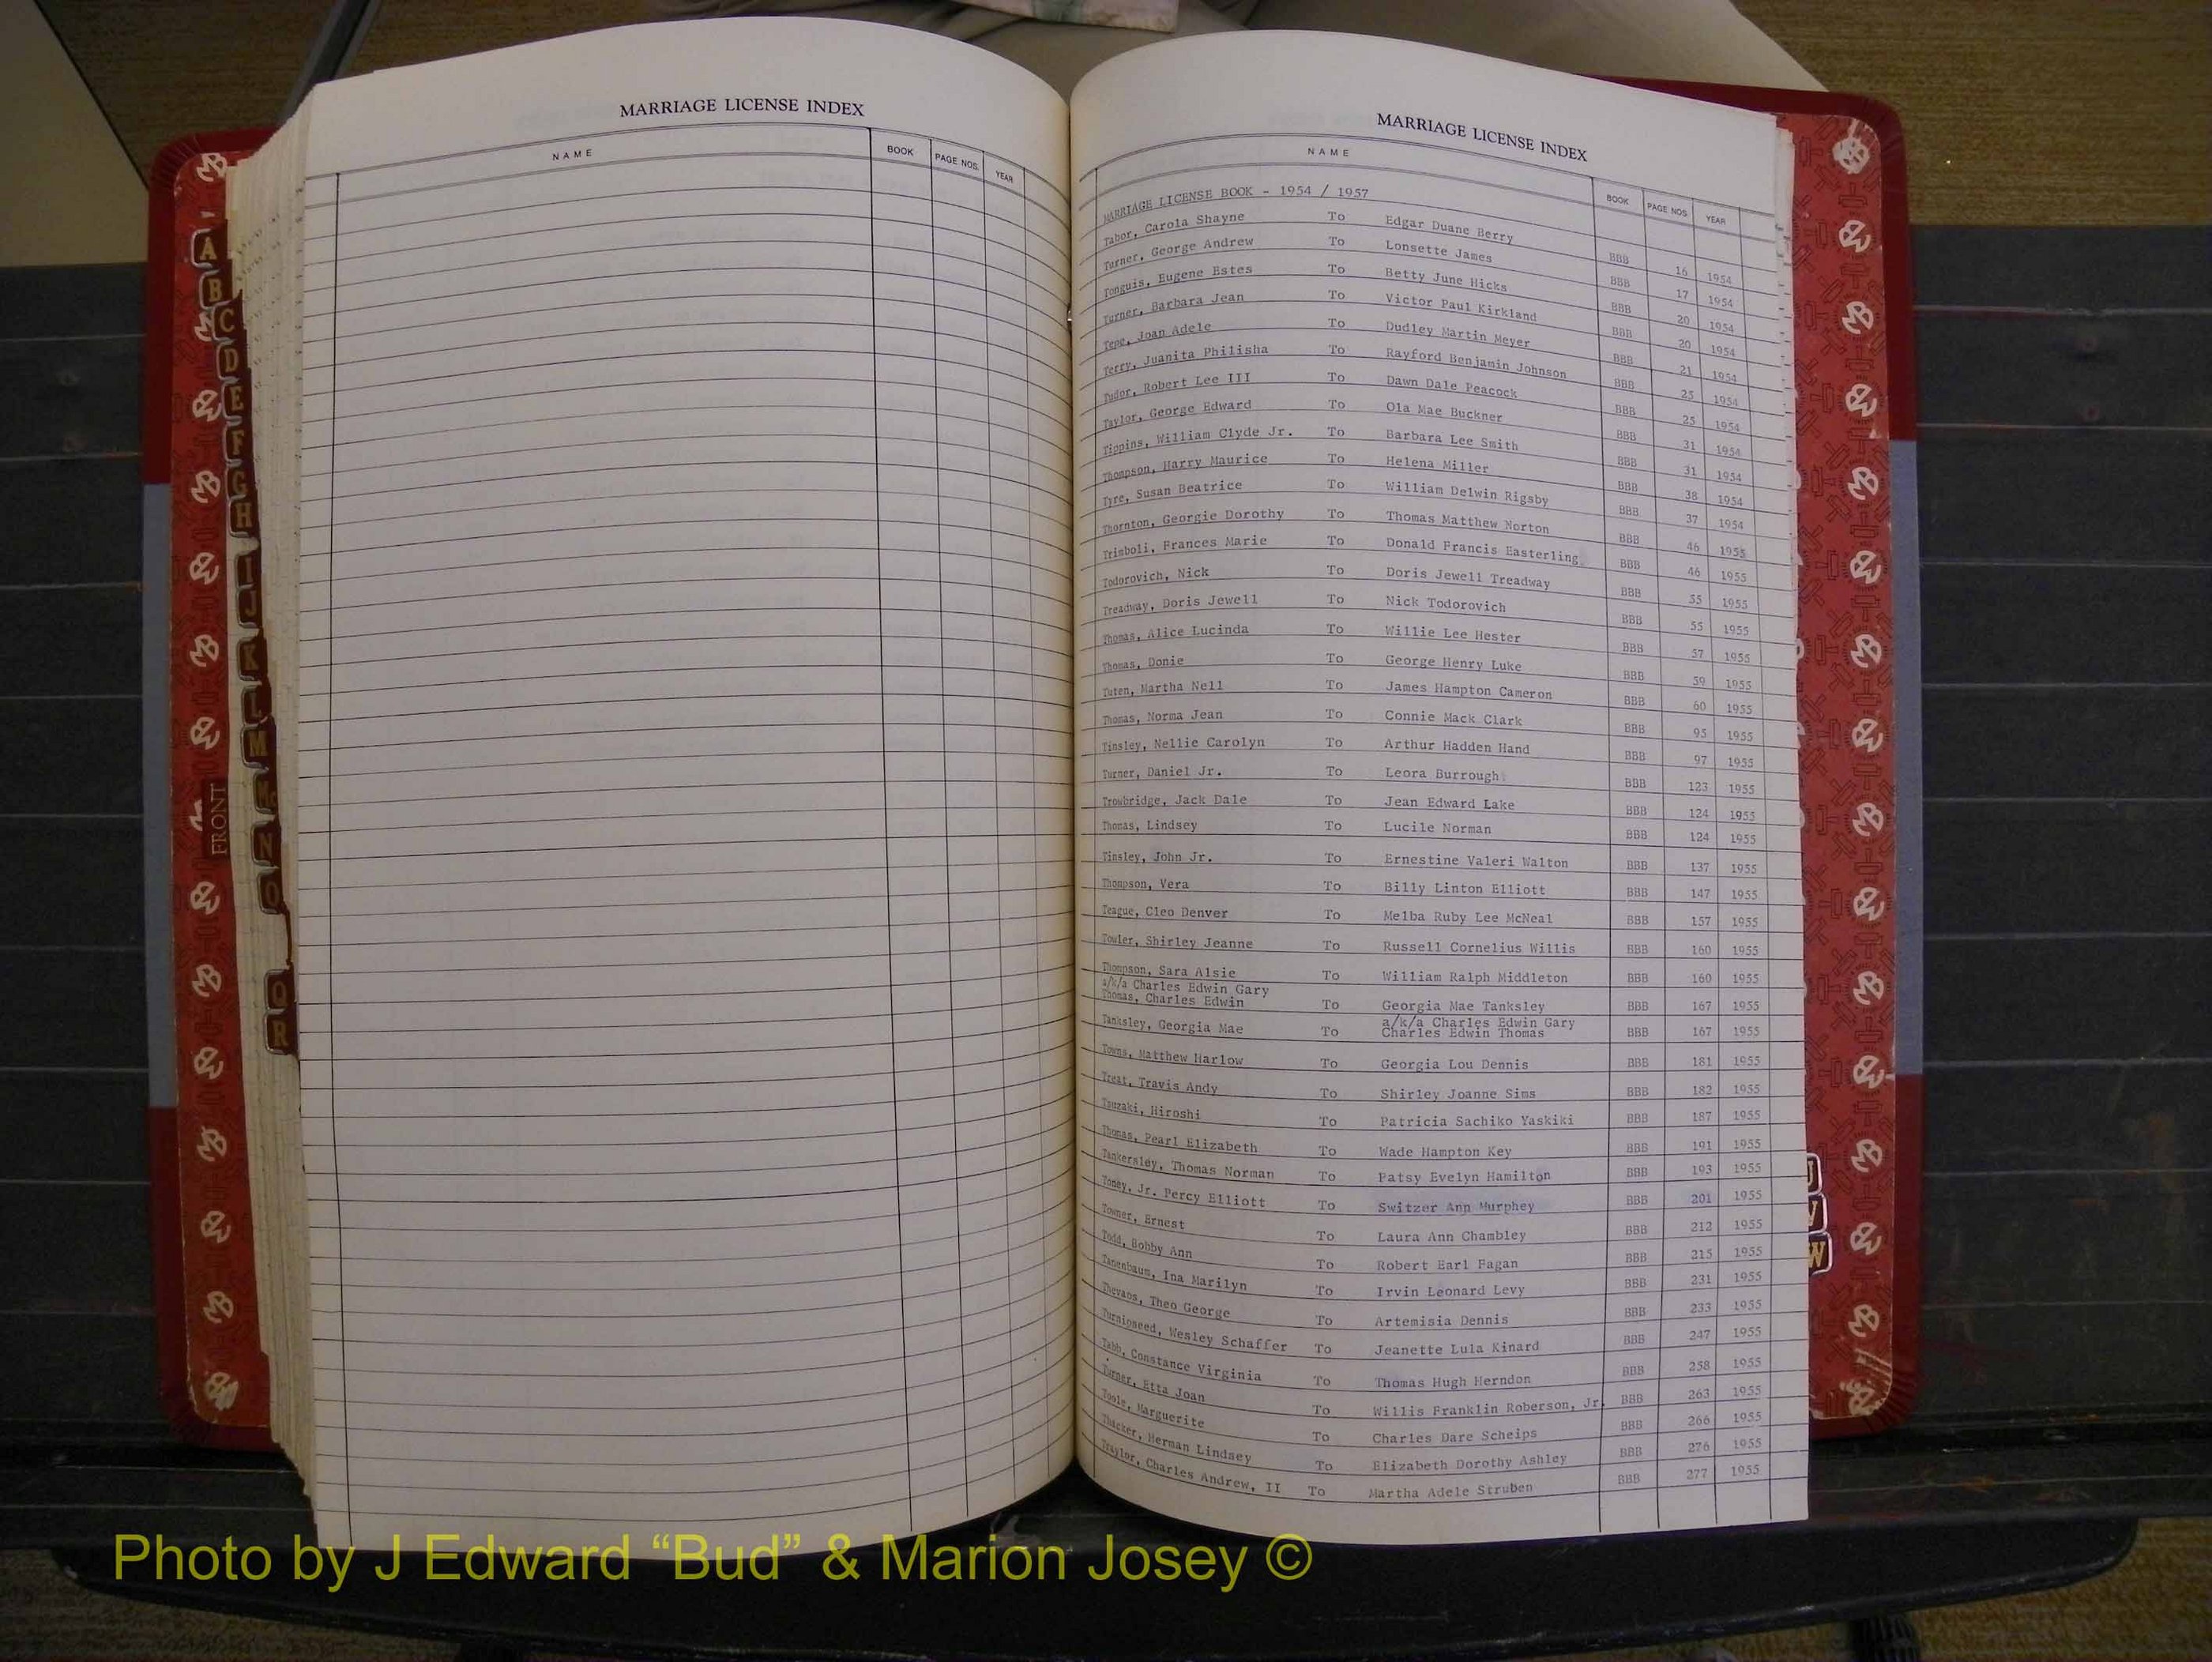 MARRIAGE LICENSE INDEX
NAME BOOK PAGE NOS. YEAR
A
B
C
D
E
F
G
H
I
J
K
L
M
Mc
N
O
Q
R
FRONT
MARRIAGE LICENSE INDEX
NAME BOOK PAGE NOS. YEAR
MARRIAGE LICENSE BOOK - 1954 / 1957
Tabor, Carola Shayne To Edgar Duane Berry BBB 16 1954
Turner, George Andrew To Lonsette James BBB 17 1954
Tonguis, Eugene Estes To Betty June Hicks BBB 20 1954
Turner, Barbara Jean To Victor Paul Kirkland BBB 20 1954
Tepe, Joan Adele To Dudley Martin Meyer BBB 21 1954
Terry, Juanita Philisha To Rayford Benjamin Johnson BBB 25 1954
Tudor, Robert Lee III To Dawn Dale Peacock BBB 25 1954
Taylor, George Edward To Ola Mae Buckner BBB 31 1954
Tippins, William Clyde Jr. To Barbara Lee Smith BBB 31 1954
Thompson, Harry Maurice To Helena Miller BBB 38 1954
Tyre, Susan Beatrice To William Delwin Rigsby BBB 37 1954
Thornton, Georgie Dorothy To Thomas Matthew Norton BBB 46 1955
Trimboli, Frances Marie To Donald Francis Easterling BBB 46 1955
Todorovich, Nick To Doris Jewell Treadway BBB 55 1955
Treadway, Doris Jewell To Nick Todorovich BBB 55 1955
Thomas, Alice Lucinda To Willie Lee Hester BBB 57 1955
Thomas, Donie To George Henry Luke BBB 59 1955
Tuten, Martha Nell To James Hampton Cameron BBB 60 1955
Thomas, Norma Jean To Connie Mack Clark BBB 95 1955
Tinsley, Nellie Carolyn To Arthur Hadden Hand BBB 97 1955
Turner, Daniel Jr. To Leora Burrough BBB 123 1955
Trowbridge, Jack Dale To Jean Edward Lake BBB 124 1955
Thomas, Lindsey To Lucile Norman BBB 124 1955
Tinsley, John Jr. To Ernestine Valeri Walton BBB 137 1955
Thompson, Vera To Billy Linton Elliott BBB 147 1955
Teague, Cleo Denver To Melba Ruby Lee McNeal BBB 157 1955
Towler, Shirley Jeanne To Russell Cornelius Willis BBB 160 1955
Thompson, Sara Alsie To William Ralph Middleton BBB 160 1955
a/k/a Charles Edwin Gary
Thomas, Charles Edwin To Georgia Mae Tanksley BBB 167 1955
a/k/a Charles Edwin Gary
Tanksley, Georgia Mae To Charles Edwin Thomas BBB 167 1955
Towns, Matthew Harlow To Georgia Lou Dennis BBB 181 1955
Treat, Travis Andy To Shirley Joanne Sims BBB 182 1955
Tsuzaki, Hiroshi To Patricia Sachiko Yaskiki BBB 187 1955
Thomas, Pearl Elizabeth To Wade Hampton Key BBB 191 1955
Tankersley, Thomas Norman To Patsy Evelyn Hamilton BBB 193 1955
Toney, Jr. Percy Elliott To Switzer Ann Murphey BBB 201 1955
Towner, Ernest To Laura Ann Chambley BBB 212 1955
Todd, Bobby Ann To Robert Earl Fagan BBB 215 1955
Tanenbaum, Ina Marilyn To Irvin Leonard Levy BBB 231 1955
Thevaos, Theo George To Artemisia Dennis BBB 233 1955
Turnipseed, Wesley Schaffer To Jeanette Lula Kinard BBB 247 1955
Tabb, Constance Virginia To Thomas Hugh Herndon BBB 258 1955
Turner, Etta Joan To Willis Franklin Roberson, Jr. BBB 263 1955
Toole, Marguerite To Charles Dare Scheips BBB 266 1955
Thacker, Herman Lindsey To Elizabeth Dorothy Ashley BBB 276 1955
Traylor, Charles Andrew, II To Martha Adele Struben BBB 277 1955
U
V
W
Photo by J Edward “Bud” & Marion Josey ©